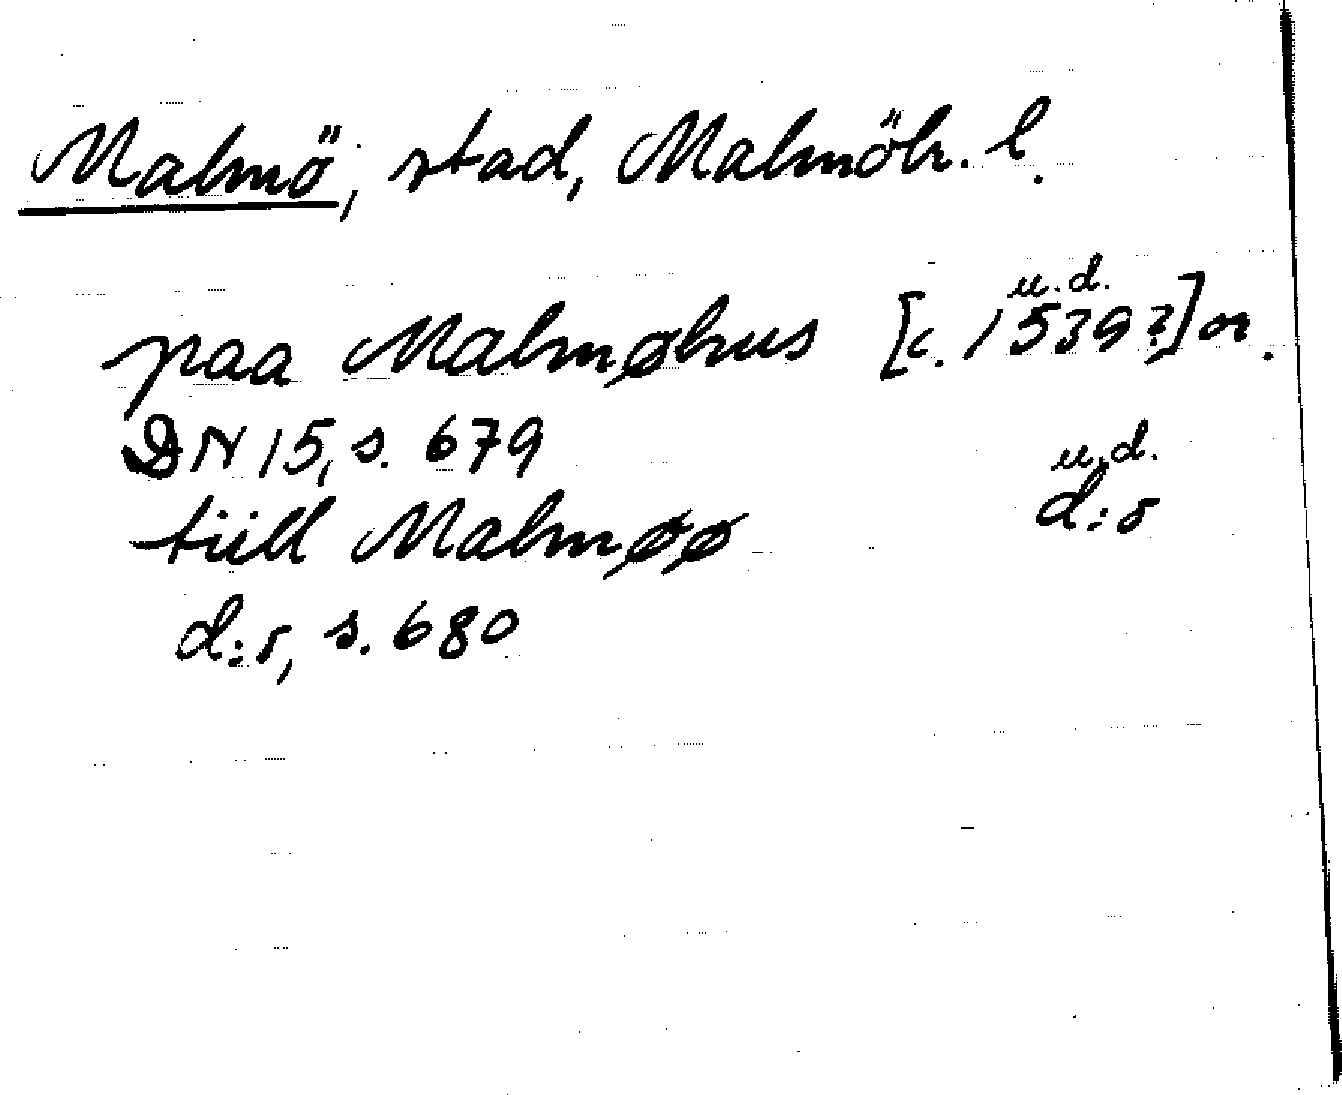 Malmö, stad, Malmöh. l.
u.d.
paa Malmøhus [c. 1539?] or.
DN 15, s. 679
u.d.
tiill Malmøø d:o
d:o, s. 680